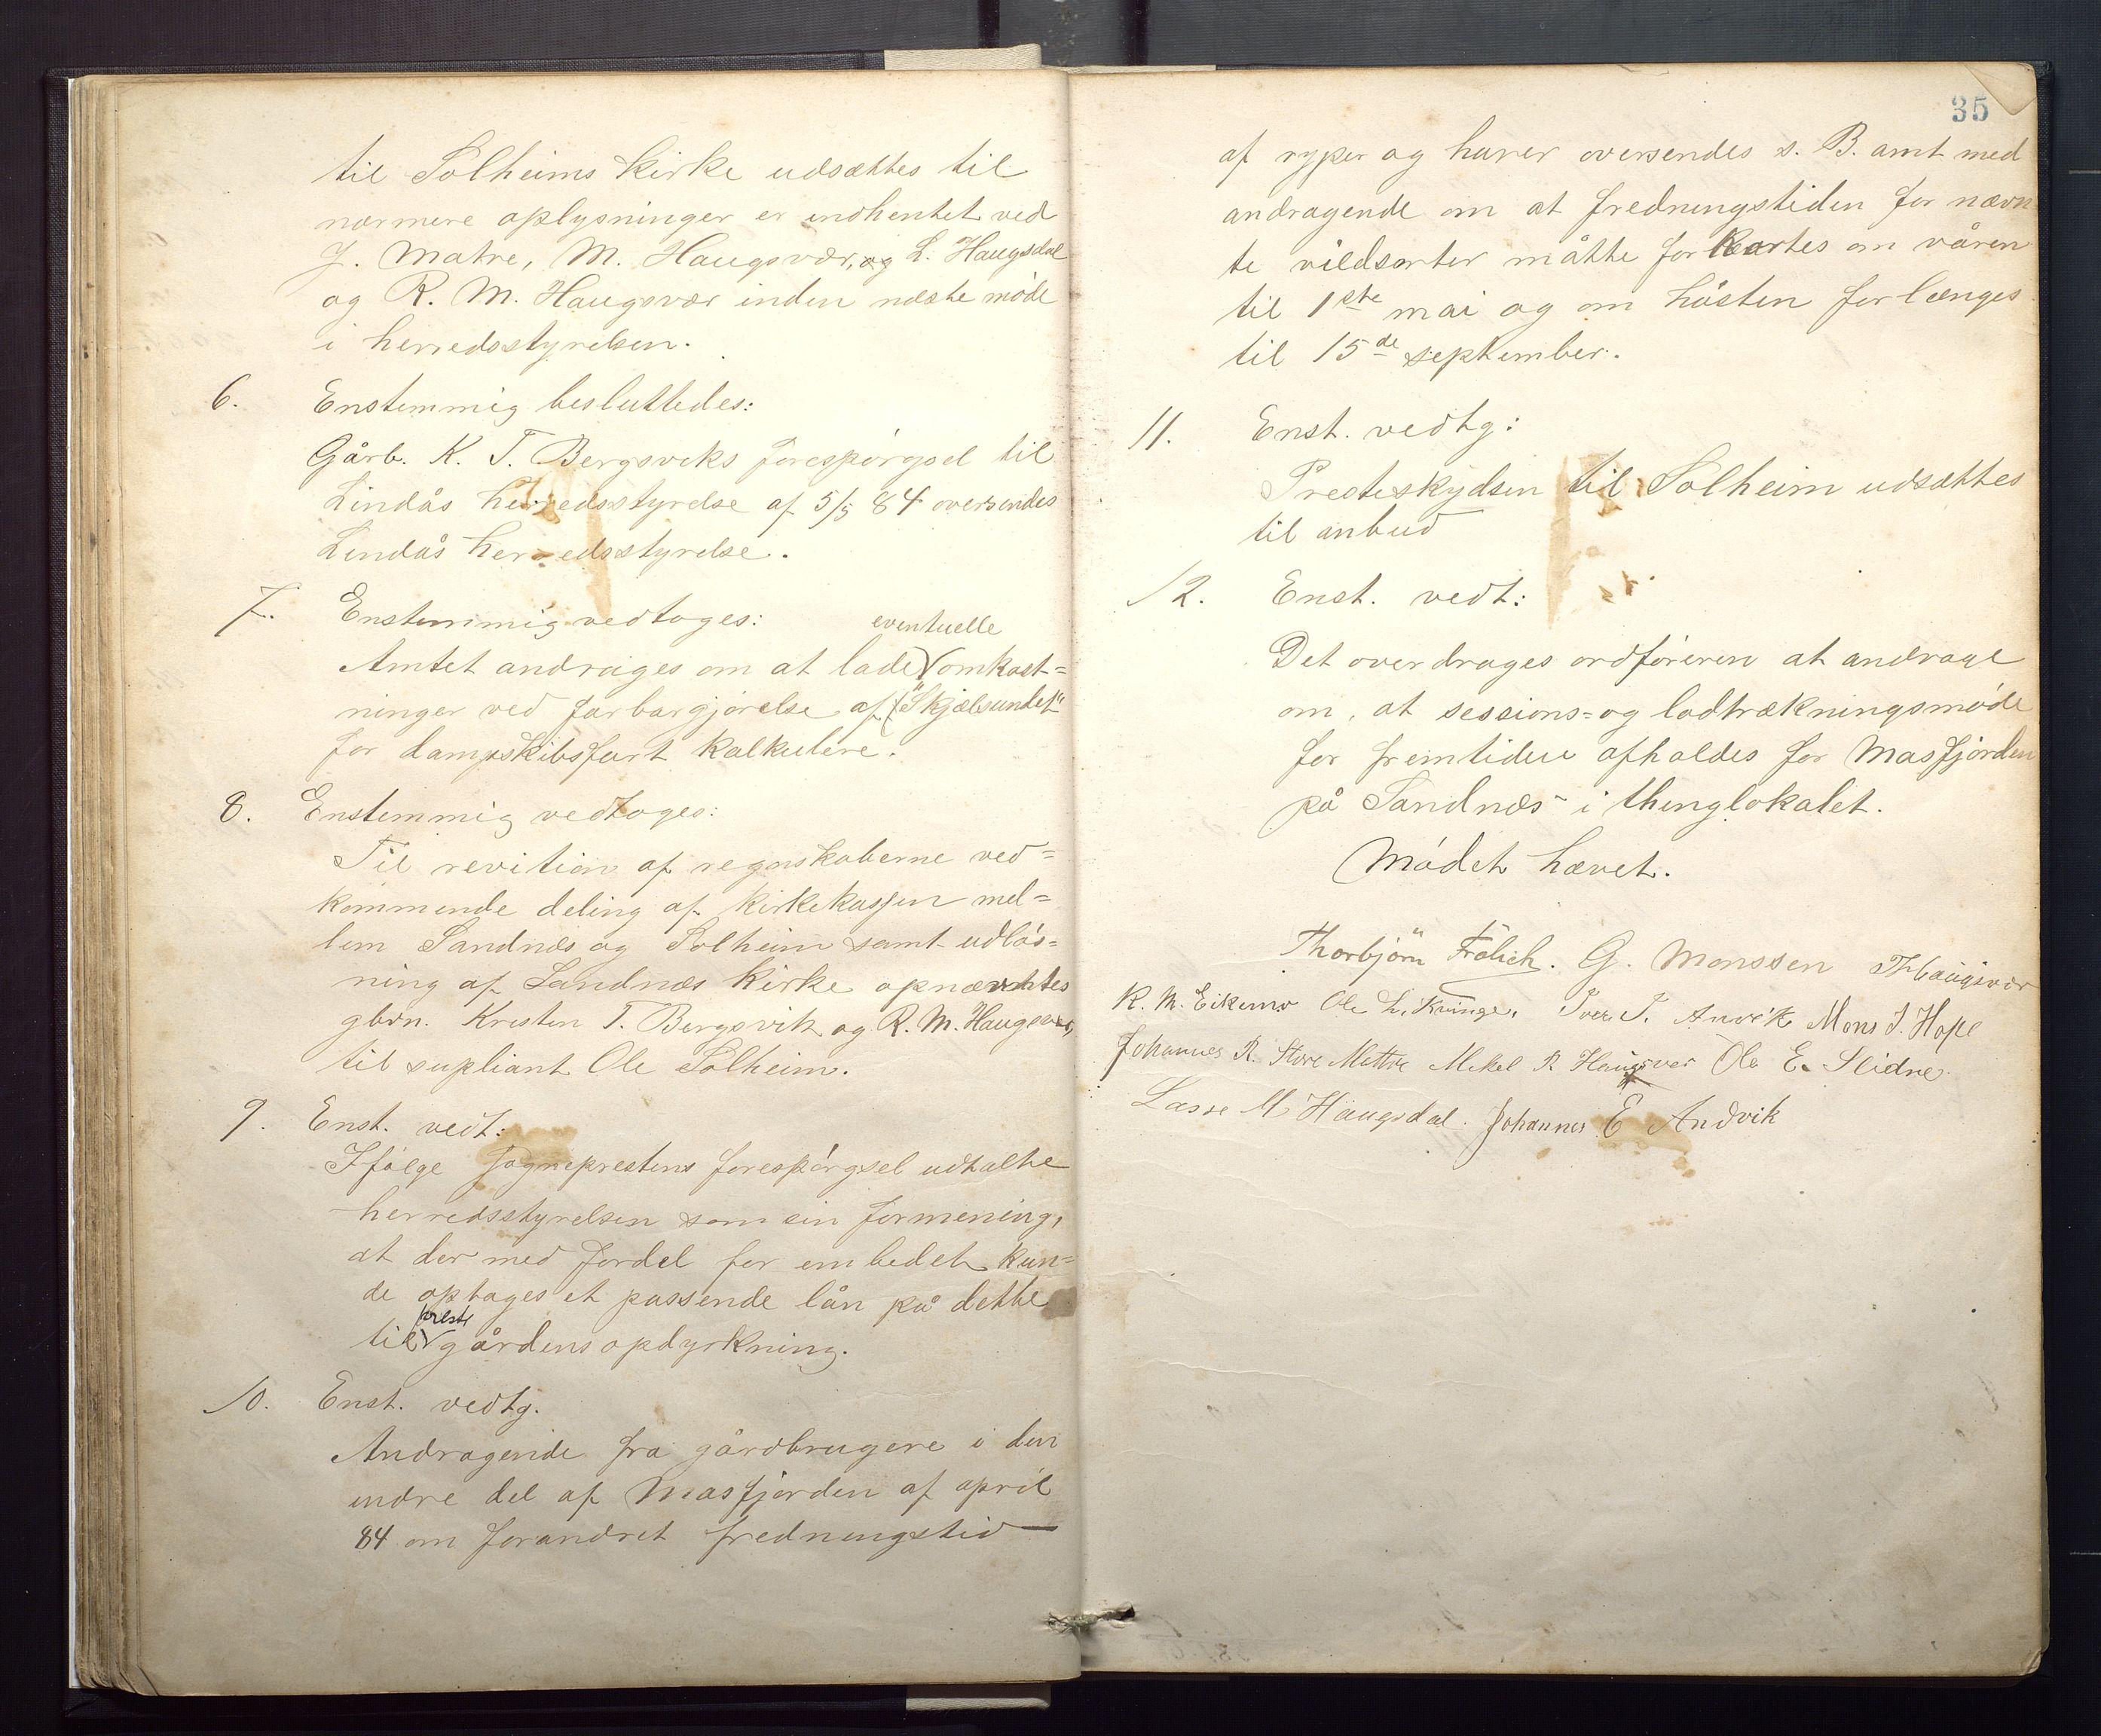 til Solheims kirke udsættes til
nærmere oplysninger er indhentet ved
J. Matre, M. Haugsvær, og L. Haugsdal
og R. M. Haugsvær inden næste møde
i herredsstyrelsen.
6. Enstemmig besluttedes:
Gårb. K. T. Bergsviks forespørgsel til
Lindås herredsstyrelse af 5/5 84 oversendes
Lindås herredsstyrelse.
7. Enstemmig vedtoges:
eventuelle
Amtet andrages om at lade √ omkost=
ninger ved farbargjørelse af "Skjælsundet"
for dampskibsfart kalkulere.
8. Enstemmig vedtoges:
Til revition af regnskaberne ved=
kommende deling af kirkekassen mel=
lem Sandnæs og Solheim samt udløs=
ning af Sandnæs kirke opnævntes
gbrn. Kristen T. Bergsvik og R. M. Haugsvær,
til supliant Ole Solheim.
9. Enst. vedt:
Ifølge sogneprestens forespørgsel udtalte
herredsstyrelsen som sin formening,
at der med fordel for embedet kun=
de optages et passende lån på dette
preste
til √ gårdens opdyrkning.
10. Enst. vedtg.
Andragende fra gårdbrugere i den
indre del af Masfjorden af april
84 om forandret fredningstid
35
af ryper og harer oversendes s. B. amt med
andragende om at fredningstiden for nævn
te vildsorter måtte forkortes om våren
til 1ste mai og om høsten forlænges
til 15de september.
11. Enst. vedtg:
Presteskydsen til Solheim udsættes
til anbud
12. Enst. vedt:
Det overdrages ordføreren at andrage
om, at sessions= og lodtrækningsmøde
for fremtiden afholdes for Masfjorden
på Sandnæs i thinglokalet.
Mødet hævet.
Thorbjörn Frölich. G. Monssen Haugsvær
R. M. Eikemo Ole L. Kvinge. Iver T. Anvik Mons J. Hope
Johannes R. Store Mattre Mikel R Haugsver Ole E. Sleidne
Lasse M Haugsdal. Johannes E Andvik